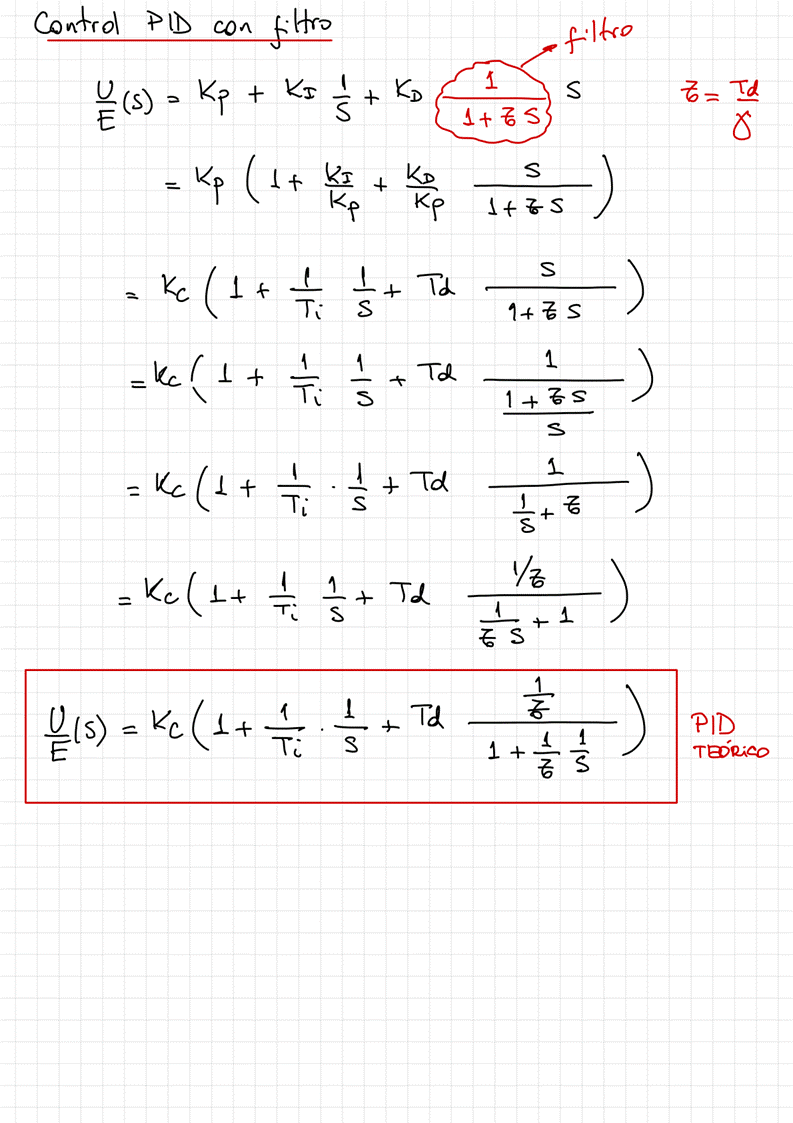 Control PID con filtro
filtro
U/E (s) = Kp + KI 1/s + KD 1/(1 + ζ s) s
ζ = Td/γ
= Kp (1 + KI/Kp + KD/Kp s/(1 + ζ s))
= Kc (1 + 1/Ti 1/s + Td s/(1 + ζ s))
= Kc (1 + 1/Ti 1/s + Td 1/((1 + ζ s)/s))
= Kc (1 + 1/Ti · 1/s + Td 1/(1/s + ζ))
= Kc (1 + 1/Ti 1/s + Td (1/ζ)/(1/(ζ s) + 1))
U/E (s) = Kc (1 + 1/Ti · 1/s + Td (1/ζ)/(1 + 1/ζ 1/s))
PID
TEÓRICO